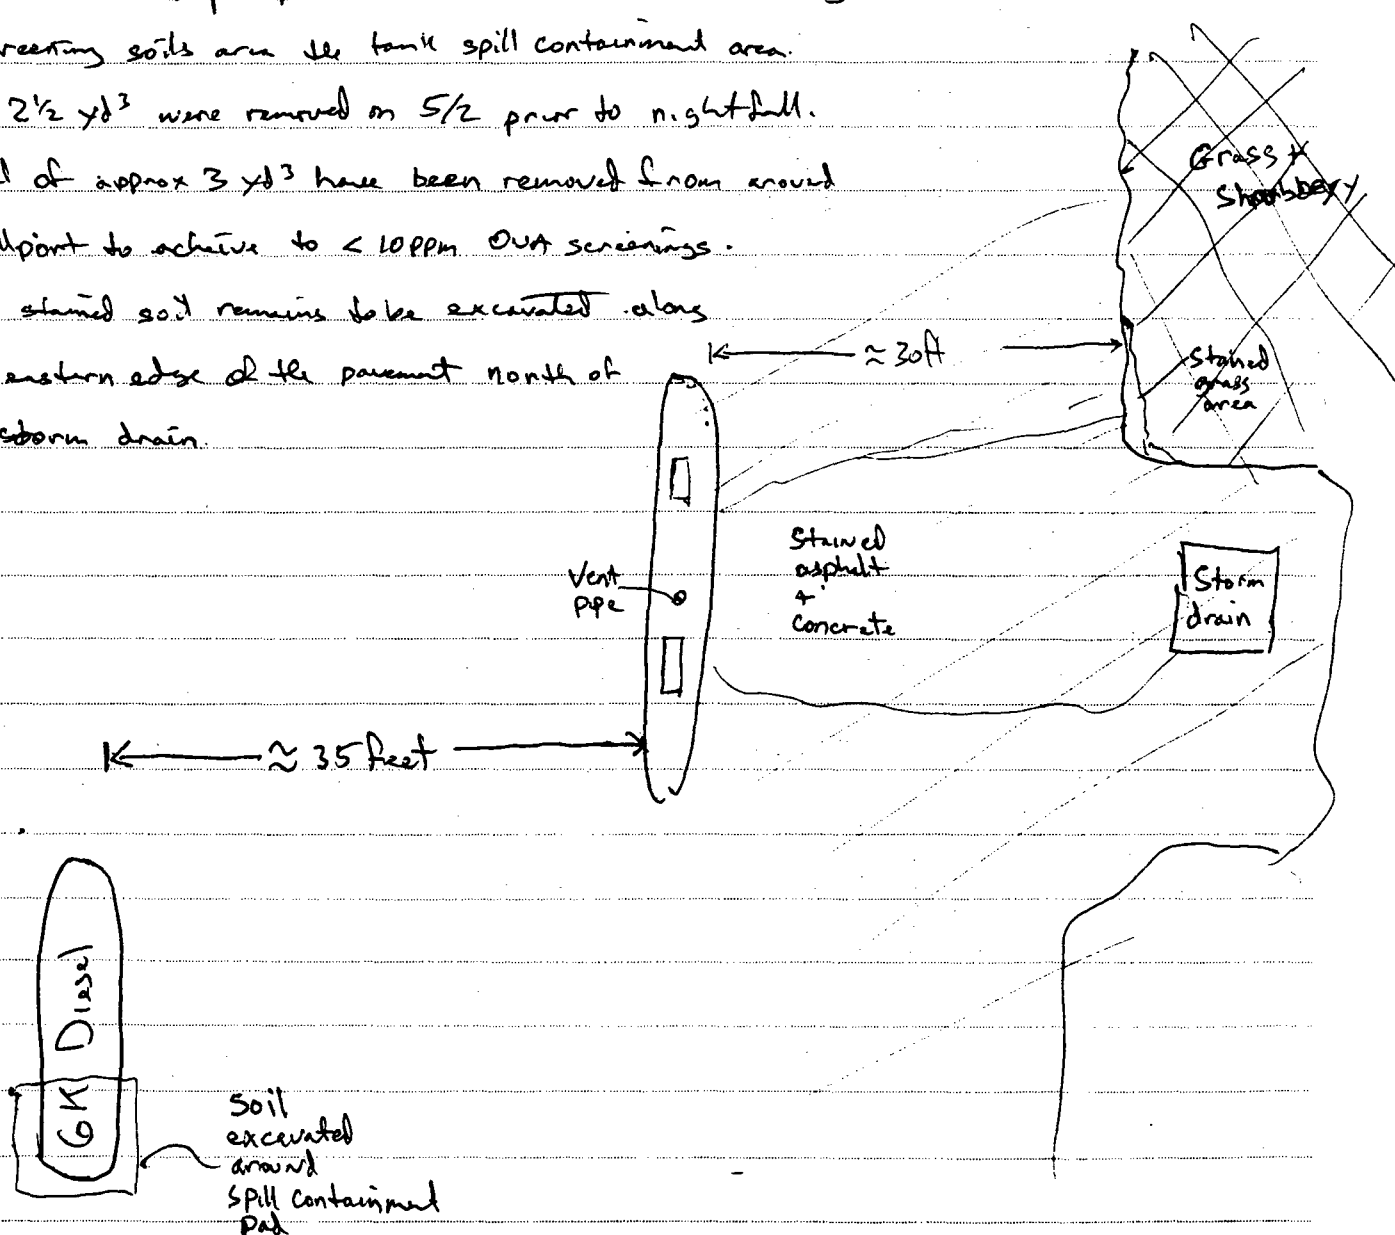 reening soils area the tank spill containment area.
2½ yd³ were removed on 5/2 prior to nightfall.
l of approx 3 yd³ have been removed from around
llport to acheive to < 10ppm OVA screenings.
stained soil remains to be excavated along
eastern edge of the pavement north of
storm drain.
Grass &
Shrubbery
≈ 30ft
Stained
grass
area
Stained
asphalt
+
concrete
Vent
pipe
Storm
drain
≈ 35 feet
6K Diesel
Soil
excavated
around
spill containment
pad